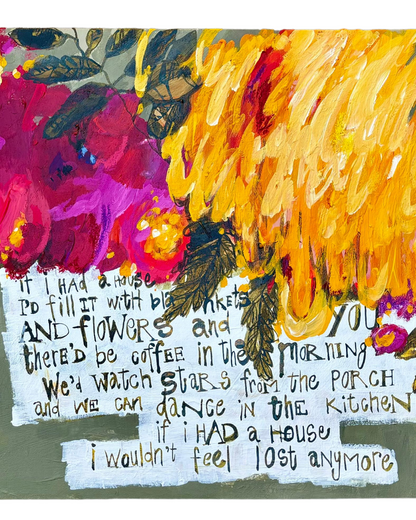 if i HAD a HOUSE
I'D fill IT with blankets
AND flOWERS and YOU
thERE'D be coffEE in the mORNING
We'd WATCh STARS from The PORCH
and WE CAN dANCE iN the KITCHEN
if i HAD a HOUSE
i wouldn't feel lost anymore